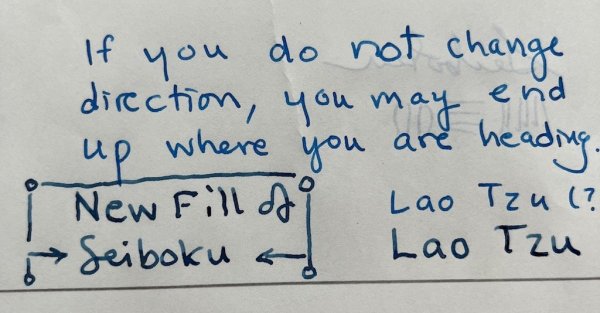 If you do not change
direction, you may end
up where you are heading.
New Fill of
Seiboku
Lao Tzu (?
Lao Tzu